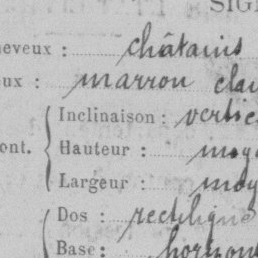 SIG
heveux : châtains
eux : marron clai
Inclinaison : vertic
ont. Hauteur : moy
Largeur : moy
Dos : rectiligne
Base : horizon